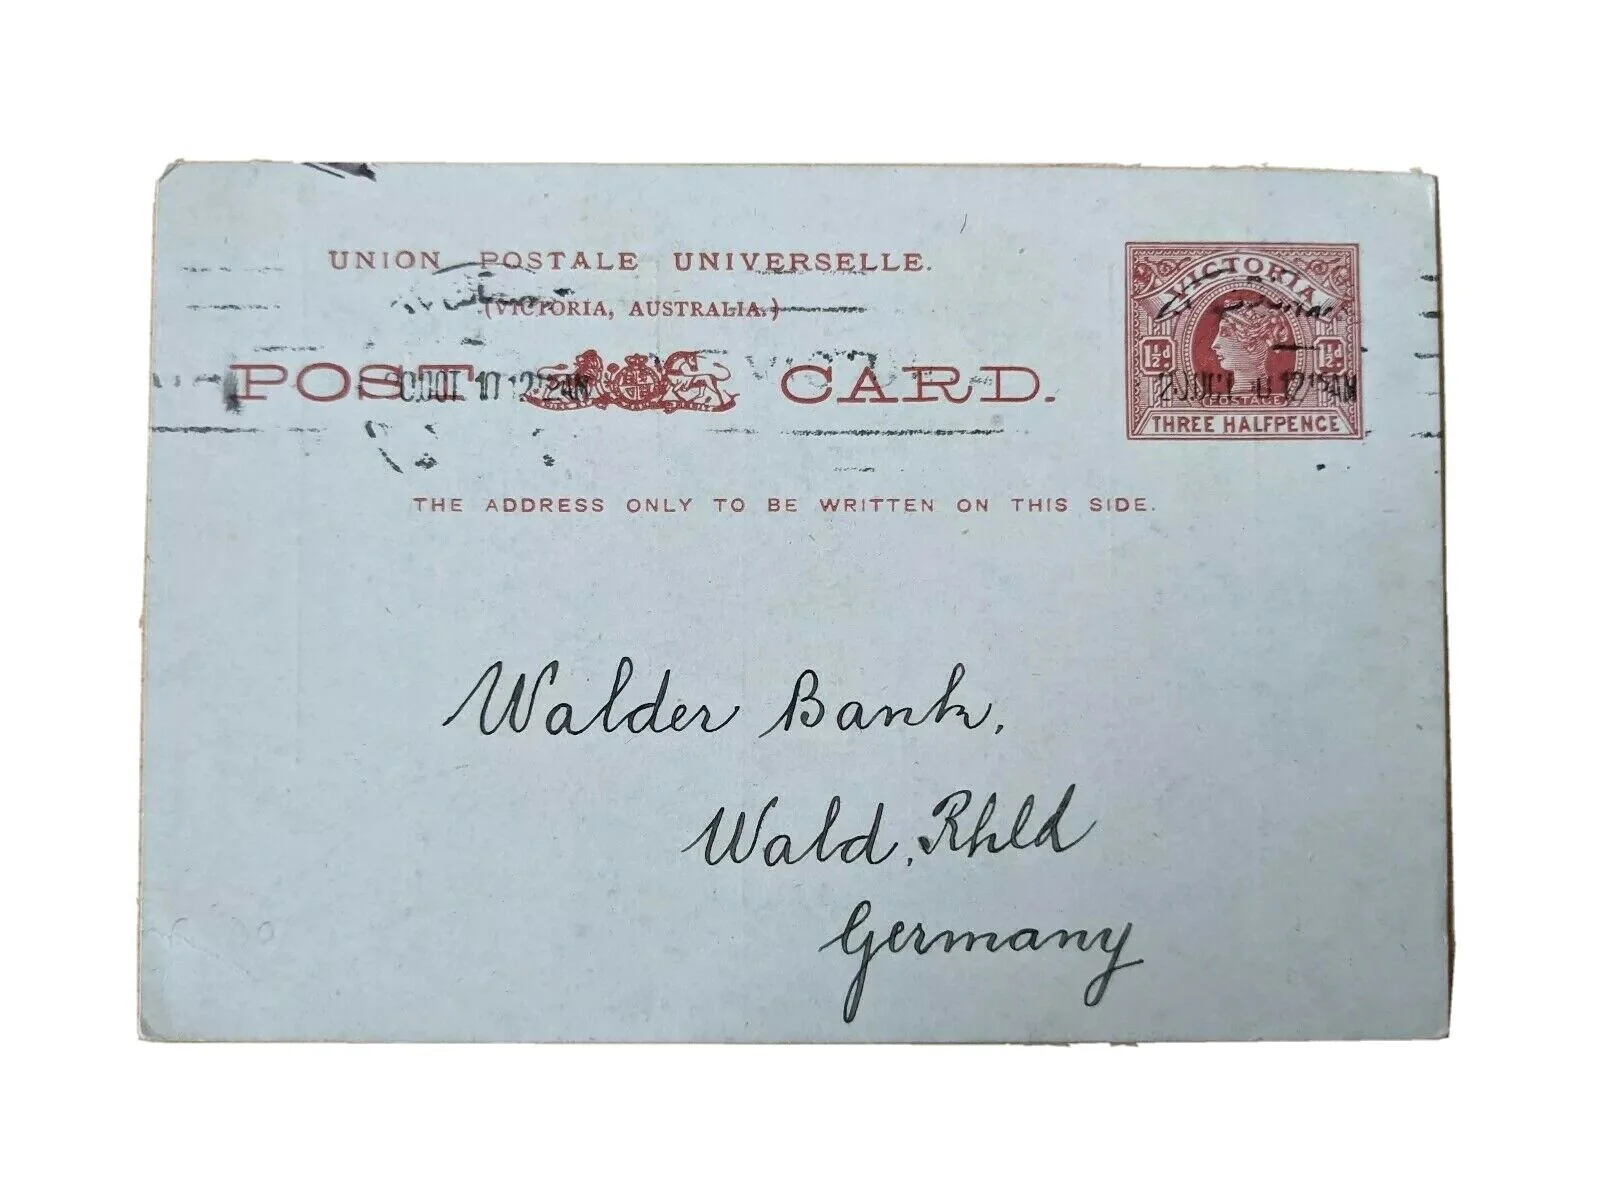 UNION POSTALE UNIVERSELLE.
(VICTORIA, AUSTRALIA.)
POST CARD.
VICTORIA
1½d 1½d
POSTAGE
THREE HALFPENCE
OCT 10 12 AM
12 AM
THE ADDRESS ONLY TO BE WRITTEN ON THIS SIDE.
Walder Bank,
Wald, Rhld
Germany